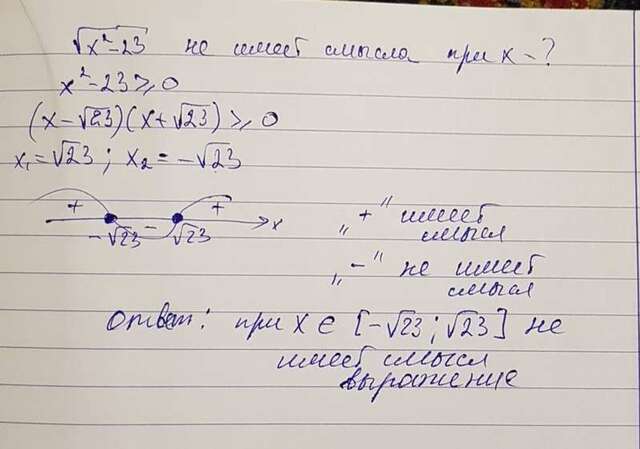 √x²-23 не имеет смысла при x - ?
x²-23⩾0
(x-√23)(x+√23)⩾0
x₁=√23; x₂=-√23
+ - + x
-√23 √23
„+" имеет
смысл
„-" не имеет
смысл
Ответ: при x ∈ [-√23; √23] не
имеет смысл
выражение